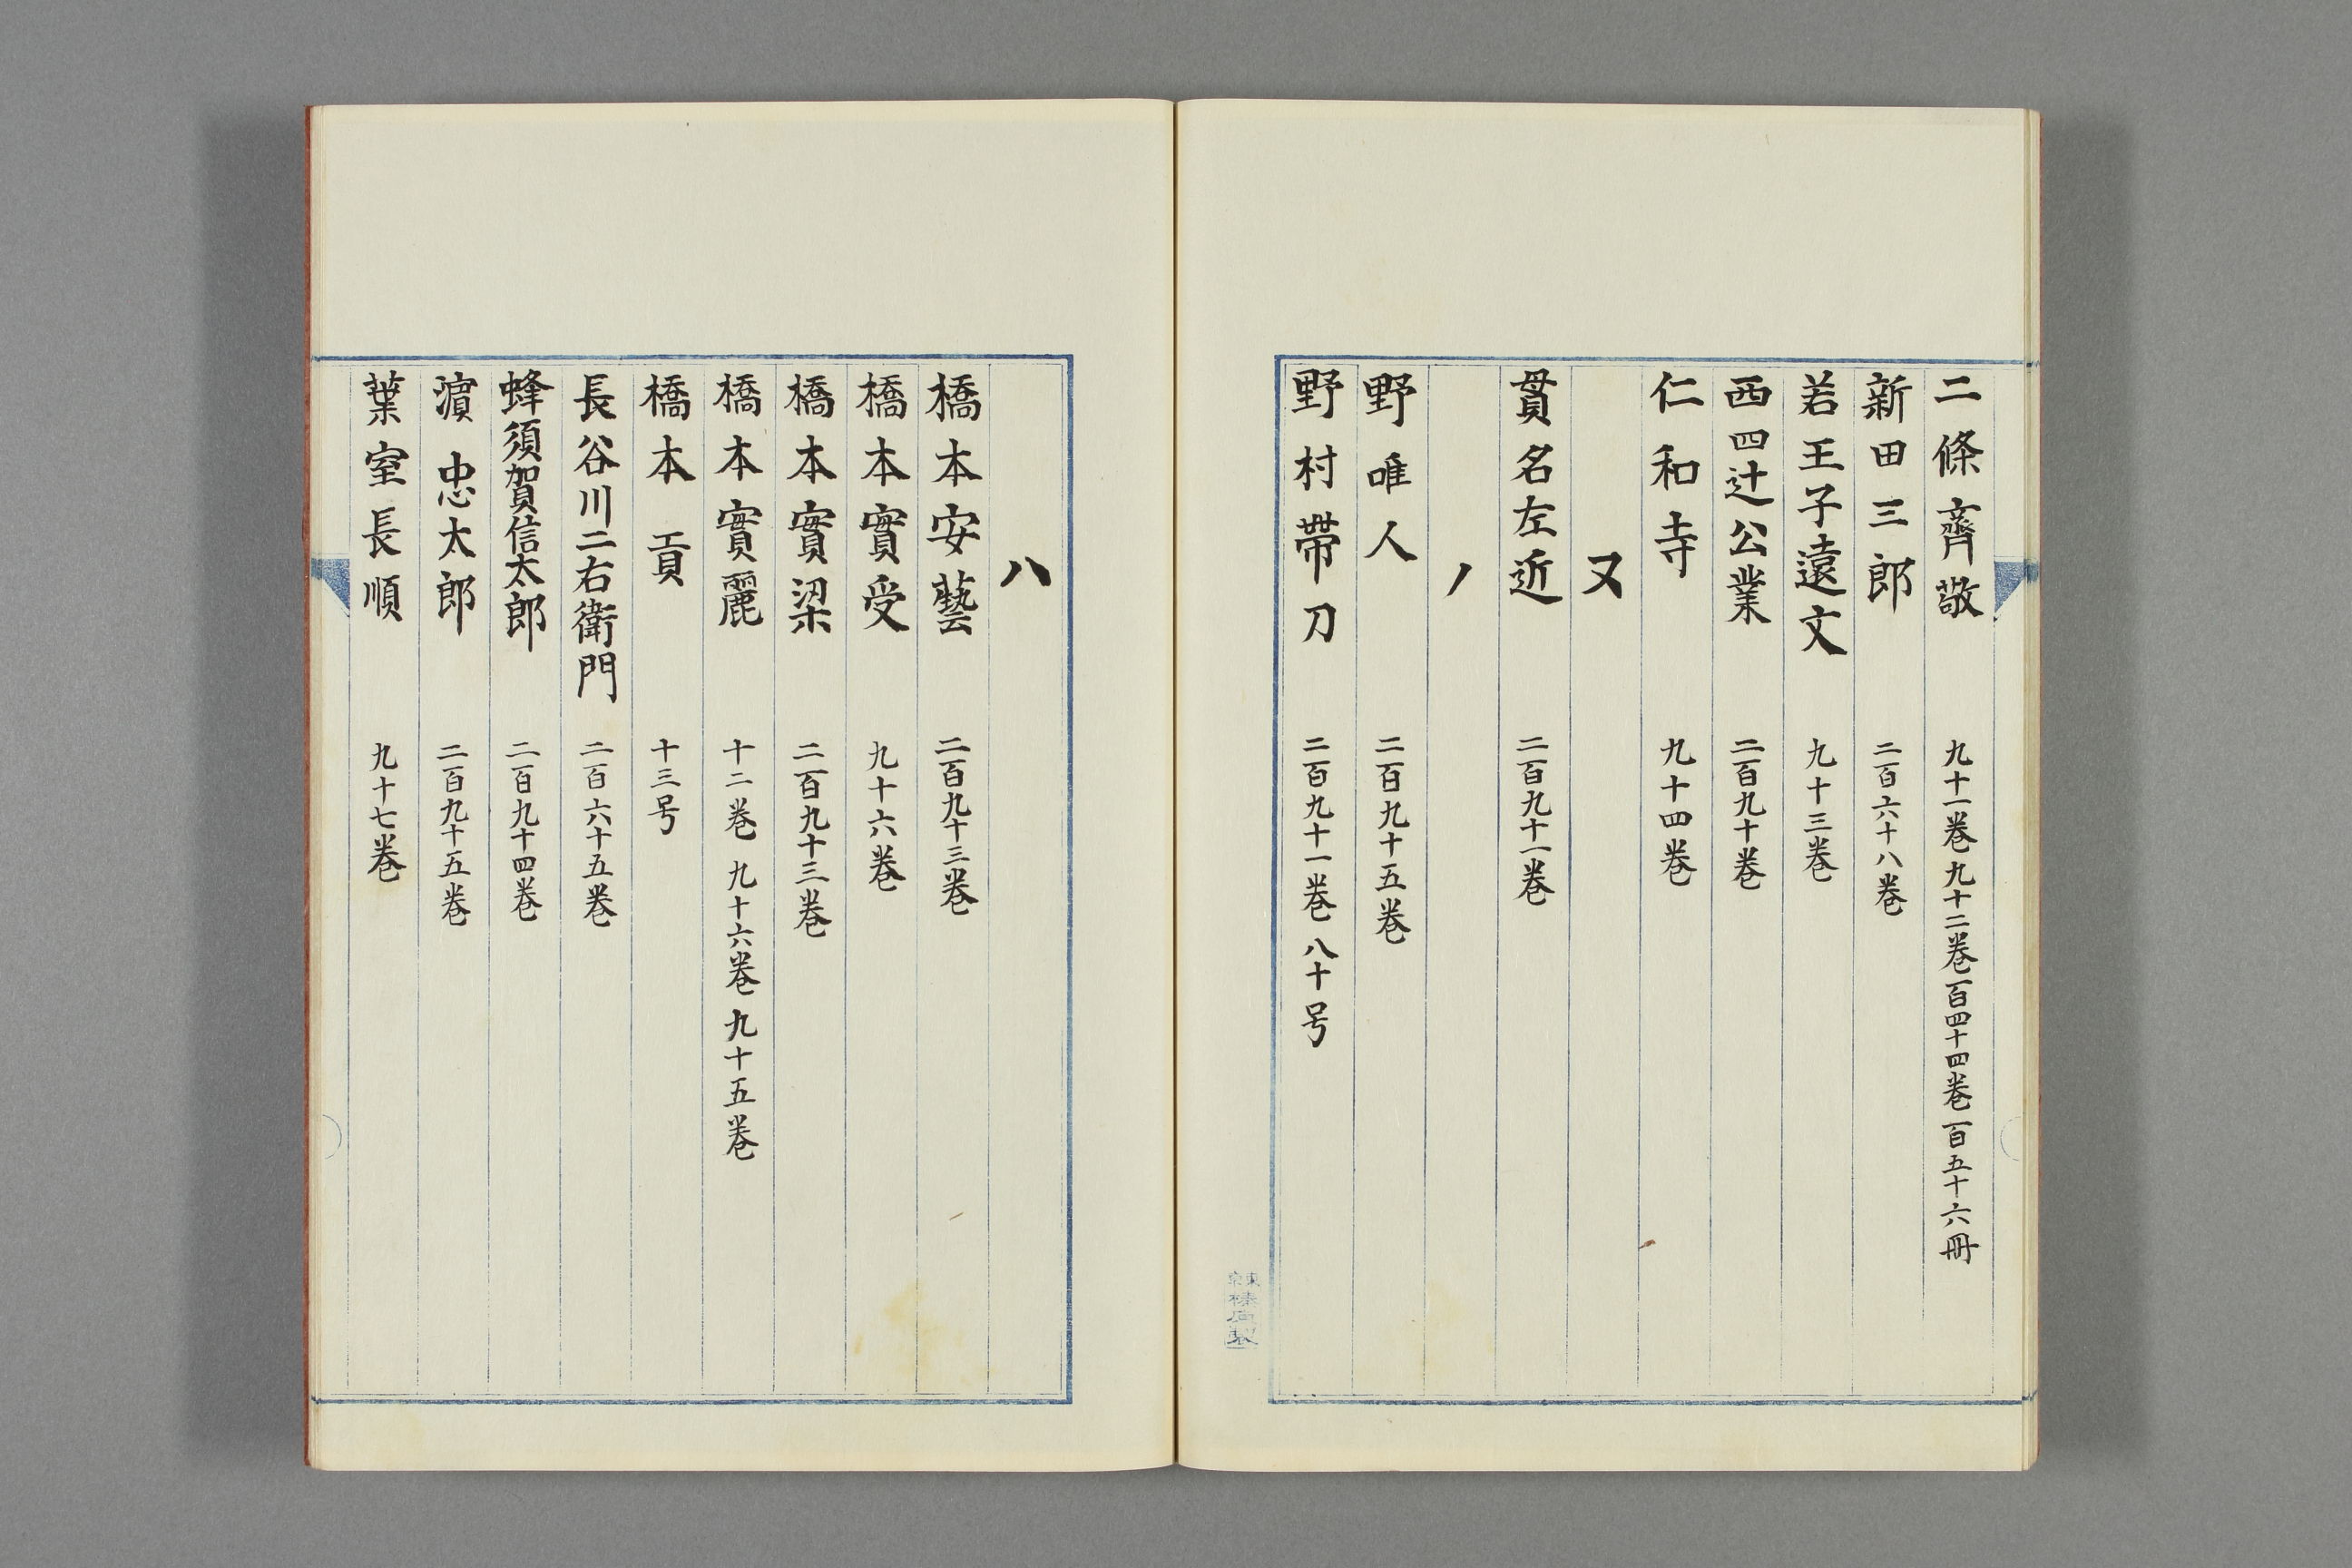 二條齊敬 九十一巻 九十二巻 百四十四巻 百五十六冊
新田三郎 二百六十八巻
若王子遠文 九十三巻
西四辻公業 二百九十巻
仁和寺 九十四巻
ヌ
貫名左近 二百九十一巻
ノ
野唯人 二百九十五巻
野村帯刀 二百九十一巻 八十号
ハ
橋本安藝 二百九十三巻
橋本實受 九十六巻
橋本實梁 二百九十三巻
橋本實麗 十二巻 九十六巻 九十五巻
橋本貢 十三号
長谷川二右衛門 二百六十五巻
蜂須賀信太郎 二百九十四巻
濵忠太郎 二百九十五巻
葉室長順 九十七巻